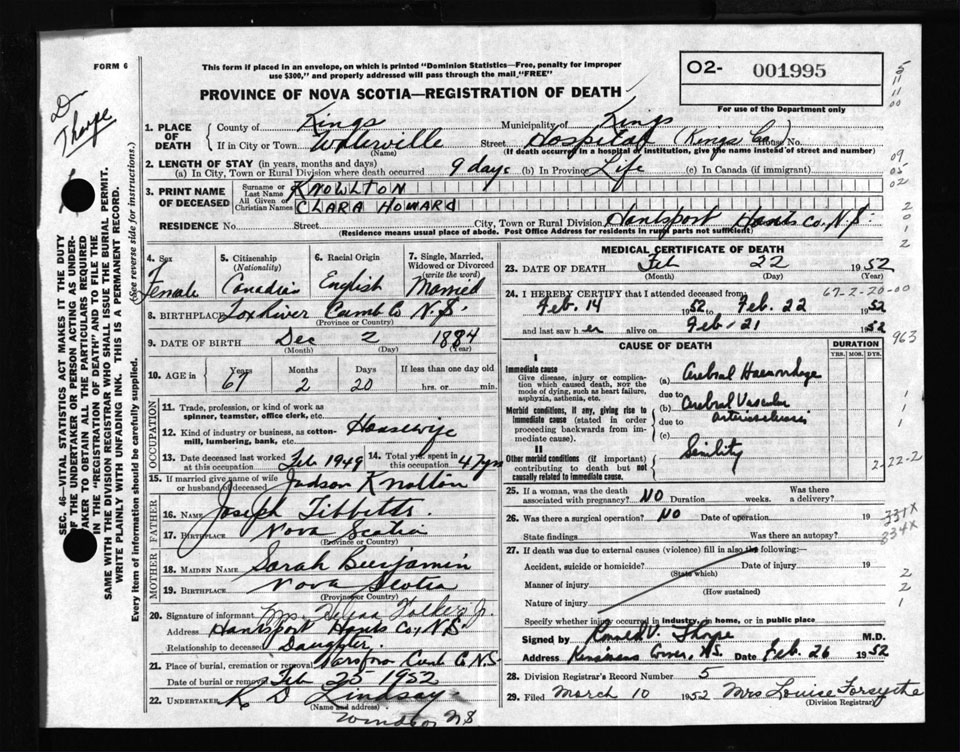 FORM 6
This form if placed in an envelope, on which is printed "Dominion Statistics—Free, penalty for improper
use $300," and properly addressed will pass through the mail "FREE"
PROVINCE OF NOVA SCOTIA—REGISTRATION OF DEATH
O2- 001995
For use of the Department only
Dr
Thorpe
5
11
11
00
09
05
02
2
0
1
2
SEC. 46—VITAL STATISTICS ACT MAKES IT THE DUTY
OF THE UNDERTAKER OR PERSON ACTING AS UNDER-
TAKER TO OBTAIN ALL THE PARTICULARS REQUIRED
IN THE "REGISTRATION OF DEATH" AND TO FILE THE
SAME WITH THE DIVISION REGISTRAR WHO SHALL ISSUE THE BURIAL PERMIT.
WRITE PLAINLY WITH UNFADING INK. THIS IS A PERMANENT RECORD.
Every item of information should be carefully supplied. (See reverse side for instructions.)
1. PLACE OF DEATH
County of Kings Municipality of Kings
If in City or Town Waterville Street Hospital (Kings Co.) House No.
(Name) (If death occurred in a hospital or institution, give the name instead of street and number)
2. LENGTH OF STAY (in years, months and days)
(a) In City, Town or Rural Division where death occurred 9 days (b) In Province Life (c) In Canada (if immigrant)
3. PRINT NAME OF DECEASED
Surname or Last Name KNOWLTON
All Given or Christian Names CLARA HOWARD
RESIDENCE No. Street City, Town or Rural Division Hantsport Hants Co, N.S.
(Residence means usual place of abode. Post Office Address for residents in rural parts not sufficient)
4. Sex Female
5. Citizenship (Nationality) Canadian
6. Racial Origin English
7. Single, Married, Widowed or Divorced (write the word) Married
8. BIRTHPLACE Fox River Cumb Co N.S.
(Province or Country)
9. DATE OF BIRTH Dec 2 1884
(Month) (Day) (Year)
10. AGE in Years 67 Months 2 Days 20 If less than one day old hrs. or min.
OCCUPATION
11. Trade, profession, or kind of work as spinner, teamster, office clerk, etc.
12. Kind of industry or business, as cotton-mill, lumbering, bank, etc. Housewife
13. Date deceased last worked at this occupation Feb 1949 14. Total yrs. spent in this occupation 47 yrs
15. If married give name of wife or husband of deceased Judson Knolton
FATHER
16. NAME Joseph Tibbetts
17. BIRTHPLACE Nova Scotia
(Province or Country)
MOTHER
18. MAIDEN NAME Sarah Benjamin
19. BIRTHPLACE Nova Scotia
(Province or Country)
20. Signature of informant Mrs
Address Hantsport Hants Co, N.S.
Relationship to deceased Daughter
21. Place of burial, cremation or removal Cumb Co N.S
Date of burial or removal Feb 25 1952
22. UNDERTAKER K D Lindsay
(Name and address)
Windsor NS
MEDICAL CERTIFICATE OF DEATH
23. DATE OF DEATH Feb 22 1952
(Month) (Day) (Year)
24. I HEREBY CERTIFY that I attended deceased from 67-2-20-00
Feb. 14 1952 to Feb. 22 1952
and last saw her alive on Feb-21 1952
963
CAUSE OF DEATH DURATION
YRS. MOS. DYS.
I
Immediate cause
Give disease, injury or complication which caused death, not the mode of dying, such as heart failure, asphyxia, asthenia, etc.
(a) Cerebral Haemorrhage
due to
Morbid conditions, if any, giving rise to immediate cause (stated in order proceeding backwards from immediate cause).
(b) Cerebral Vascular Arteriosclerosis
due to
(c)
II
Other morbid conditions (if important) contributing to death but not causally related to immediate cause.
Senility
1
1
1
2-22-2
25. If a woman, was the death associated with pregnancy? NO Duration weeks. Was there a delivery?
26. Was there a surgical operation? NO Date of operation 19
331X
334X
State findings Was there an autopsy?
27. If death was due to external causes (violence) fill in also the following:—
Accident, suicide or homicide? Date of injury 19
(State which)
Manner of injury
(How sustained)
Nature of injury
2
2
1
Specify whether injury occurred in industry, in home, or in public place
Signed by Ronald V. Thorpe M.D.
Address N.S. Date Feb. 26 1952
28. Division Registrar's Record Number 5
29. Filed March 10 1952 Mrs Louise Forsythe
(Division Registrar)